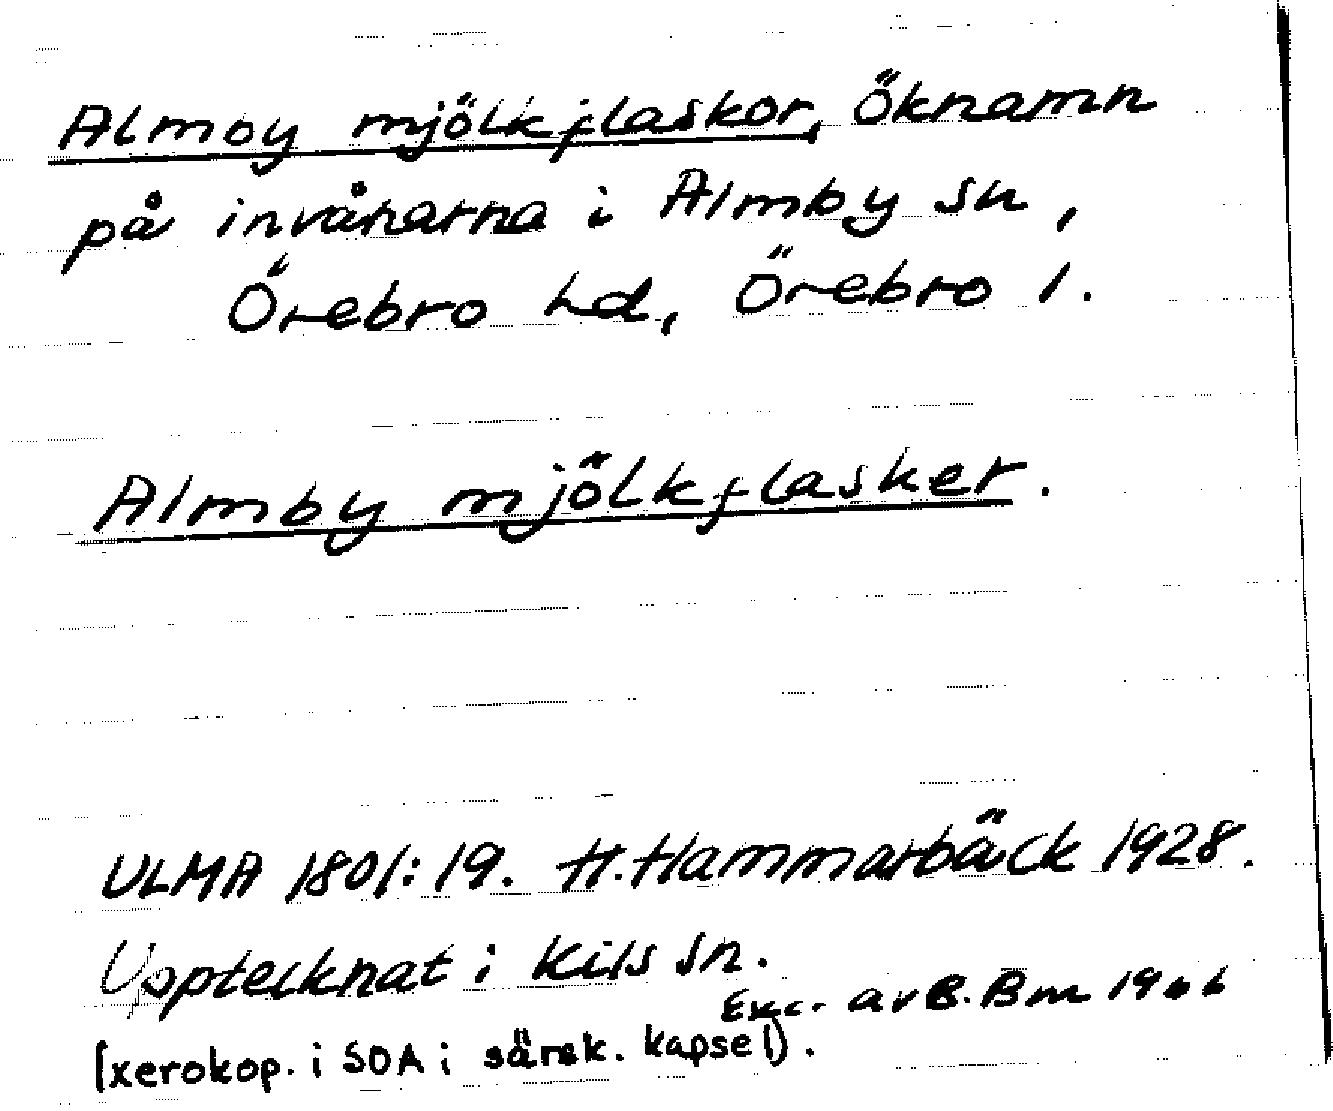 Almby mjölkflaskor, öknamn
på invånarna i Almby sn,
Örebro hd, Örebro l.
Almby mjölkflasker.
ULMA 1801:19. H. Hammarbäck 1928.
Upptecknat i Kils sn.
Exc. av B. Bm 1966
(xerokop. i SOA i särsk. kapsel).